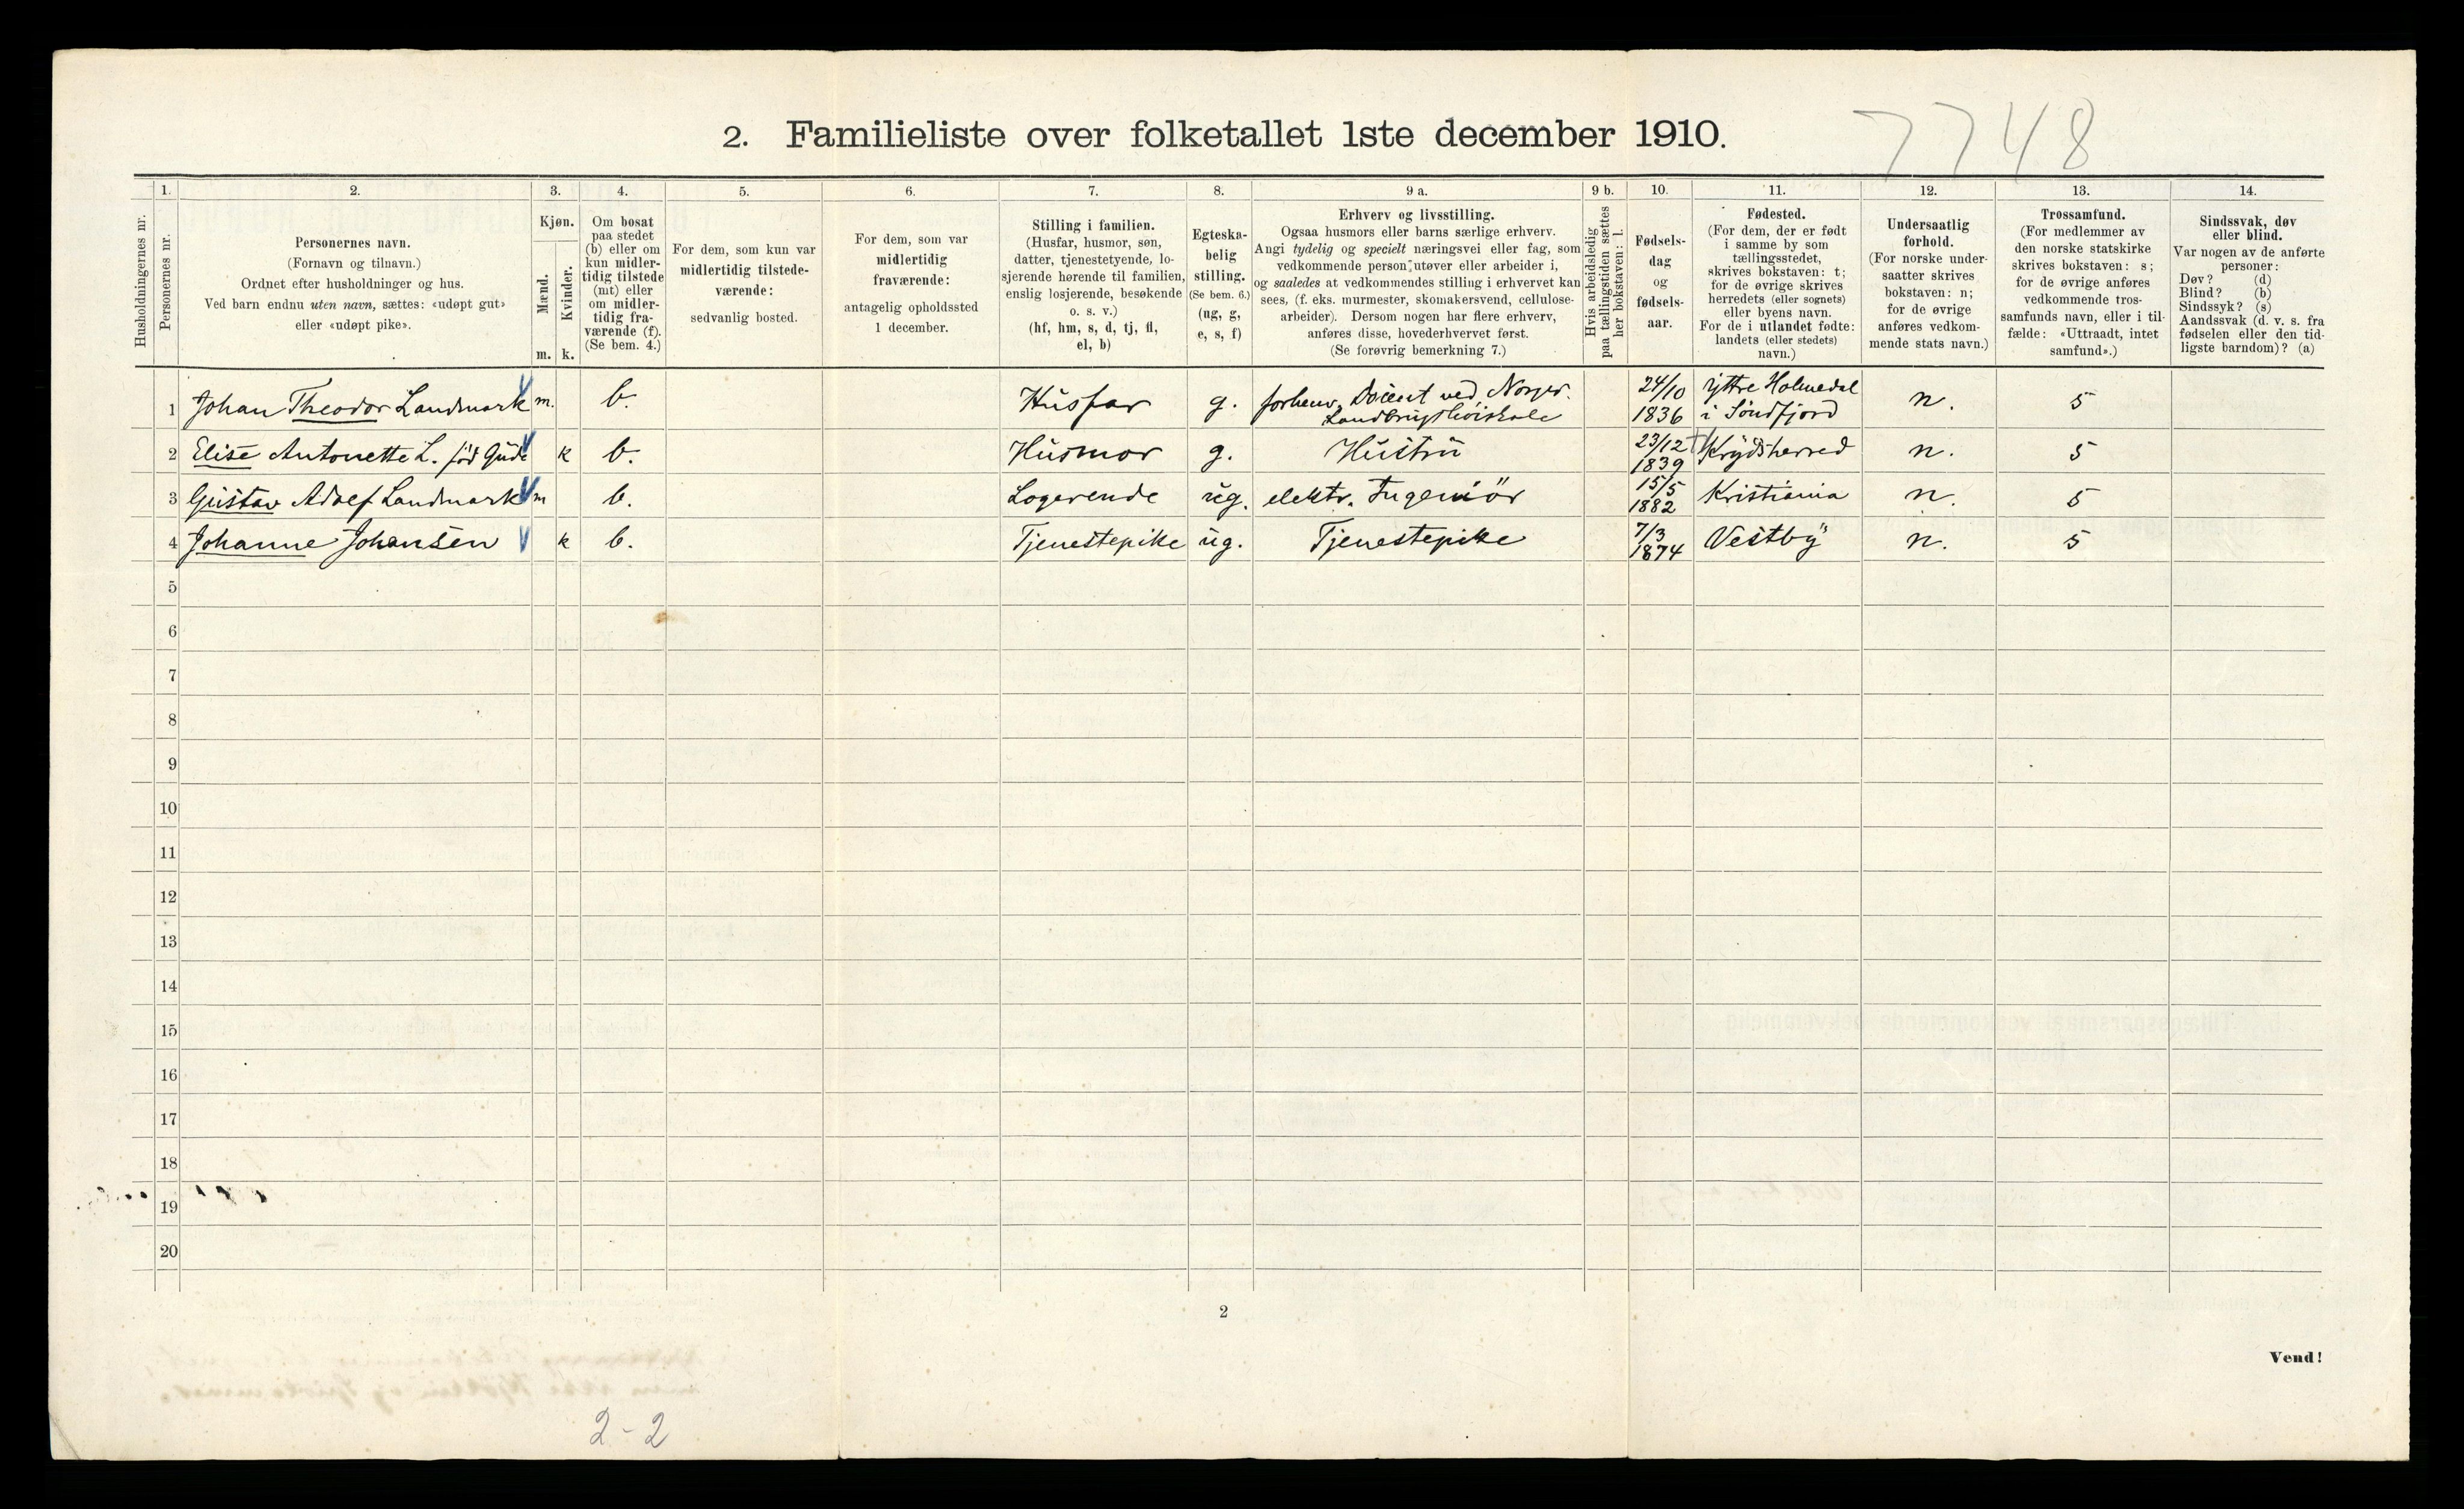 7748
2. Familieliste over folketallet 1ste december 1910.
Husholdningernes nr.
1.
Personernes nr.
2.
Personernes navn.
(Fornavn og tilnavn.)
Ordnet efter husholdninger og hus.
Ved barn endnu uten navn, sættes: «udøpt gut»
eller «udøpt pike».
3.
Kjøn.
Mænd.
Kvinder.
m. k.
4.
Om bosat
paa stedet
(b) eller om
kun midler-
tidig tilstede
(mt) eller
om midler-
tidig fra-
værende (f).
(Se bem. 4.)
5.
For dem, som kun var
midlertidig tilstede-
værende:
sedvanlig bosted.
6.
For dem, som var
midlertidig
fraværende:
antagelig opholdssted
1 december.
7.
Stilling i familien.
(Husfar, husmor, søn,
datter, tjenestetyende, lo-
sjerende hørende til familien,
enslig losjerende, besøkende
o. s. v.)
(hf, hm, s, d, tj, fl,
el, b)
8.
Egteska-
belig
stilling.
(Se bem. 6.)
(ug, g,
e, s, f)
9 a.
Erhverv og livsstilling.
Ogsaa husmors eller barns særlige erhverv.
Angi tydelig og specielt næringsvei eller fag, som
vedkommende person utøver eller arbeider i,
og saaledes at vedkommendes stilling i erhvervet kan
sees, (f. eks. murmester, skomakersvend, cellulose-
arbeider). Dersom nogen har flere erhverv,
anføres disse, hovederhvervet først.
(Se forøvrig bemerkning 7.)
9 b.
Hvis arbeidsledig
paa tællingstiden sættes
her bokstaven: l.
10.
Fødsels-
dag
og
fødsels-
aar.
11.
Fødested.
(For dem, der er født
i samme by som
tællingsstedet,
skrives bokstaven: t;
for de øvrige skrives
herredets (eller sognets)
eller byens navn.
For de i utlandet fødte:
landets (eller stedets)
navn.)
12.
Undersaatlig
forhold.
(For norske under-
saatter skrives
bokstaven: n;
for de øvrige
anføres vedkom-
mende stats navn.)
13.
Trossamfund.
(For medlemmer av
den norske statskirke
skrives bokstaven: s;
for de øvrige anføres
vedkommende tros-
samfunds navn, eller i til-
fælde: «Uttraadt, intet
samfund».)
14.
Sindssvak, døv
eller blind.
Var nogen av de anførte
personer:
Døv? (d)
Blind? (b)
Sindssyk? (s)
Aandssvak (d. v. s. fra
fødselen eller den tid-
ligste barndom)? (a)
1 Johan Theodor Landmark m. b. Husfar g. forhenv. Docent ved Norges Landbrugshøiskole 24/10 1836 Yttre Holmedal i Søndfjord n. s
2 Elise Antonette L. fød Gude k b. Husmor g. Hustru 23/12 1839 Krydsherred n. s
3 Gustav Adolf Landmark m b. Logerende ug. elektr. Ingeniör 15/5 1882 Kristiania n. s
4 Johanne Johansen k b. Tjenestepike ug. Tjenestepike 7/3 1874 Vestby n. s
5
6
7
8
9
10
11
12
13
14
15
16
17
18
19
20
2
Vend!
2-2